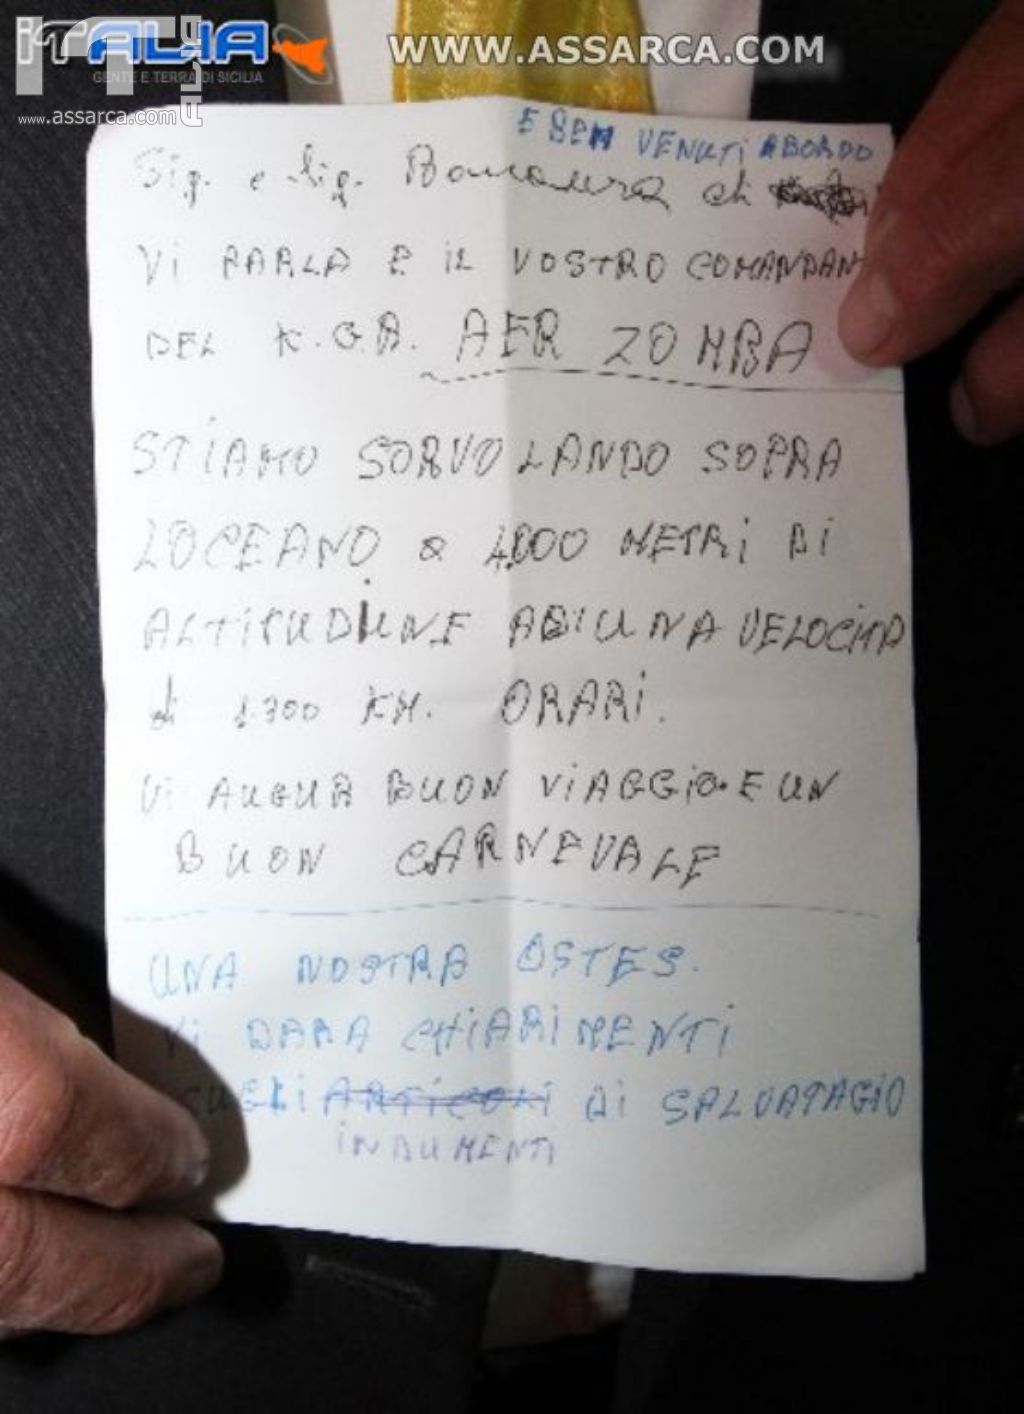 iTALIA
GENTE E TERRA DI SICILIA
www.assarca.com
WWW.ASSARCA.COM
E BEN VENUTI ABORDO
Sig. e Sig. Bonasera
VI PARLA E IL VOSTRO COMANDAN
DEL K.G.B. AER ZOMBA
STIAMO SORVOLANDO SOPRA
LOCEANO a 4.000 METRI DI
ALTITUDIUNE ADIUNA VELOCITA
di 1.300 KM. ORARI.
VI AUGUR BUON VIAGGIO.E UN
BUON CARNEVALE
UNA NOSTRA OSTES.
VI DARA CHIARIMENTI
SUGLI ARTICOLI DI SALVATAGIO
INDUMENTI